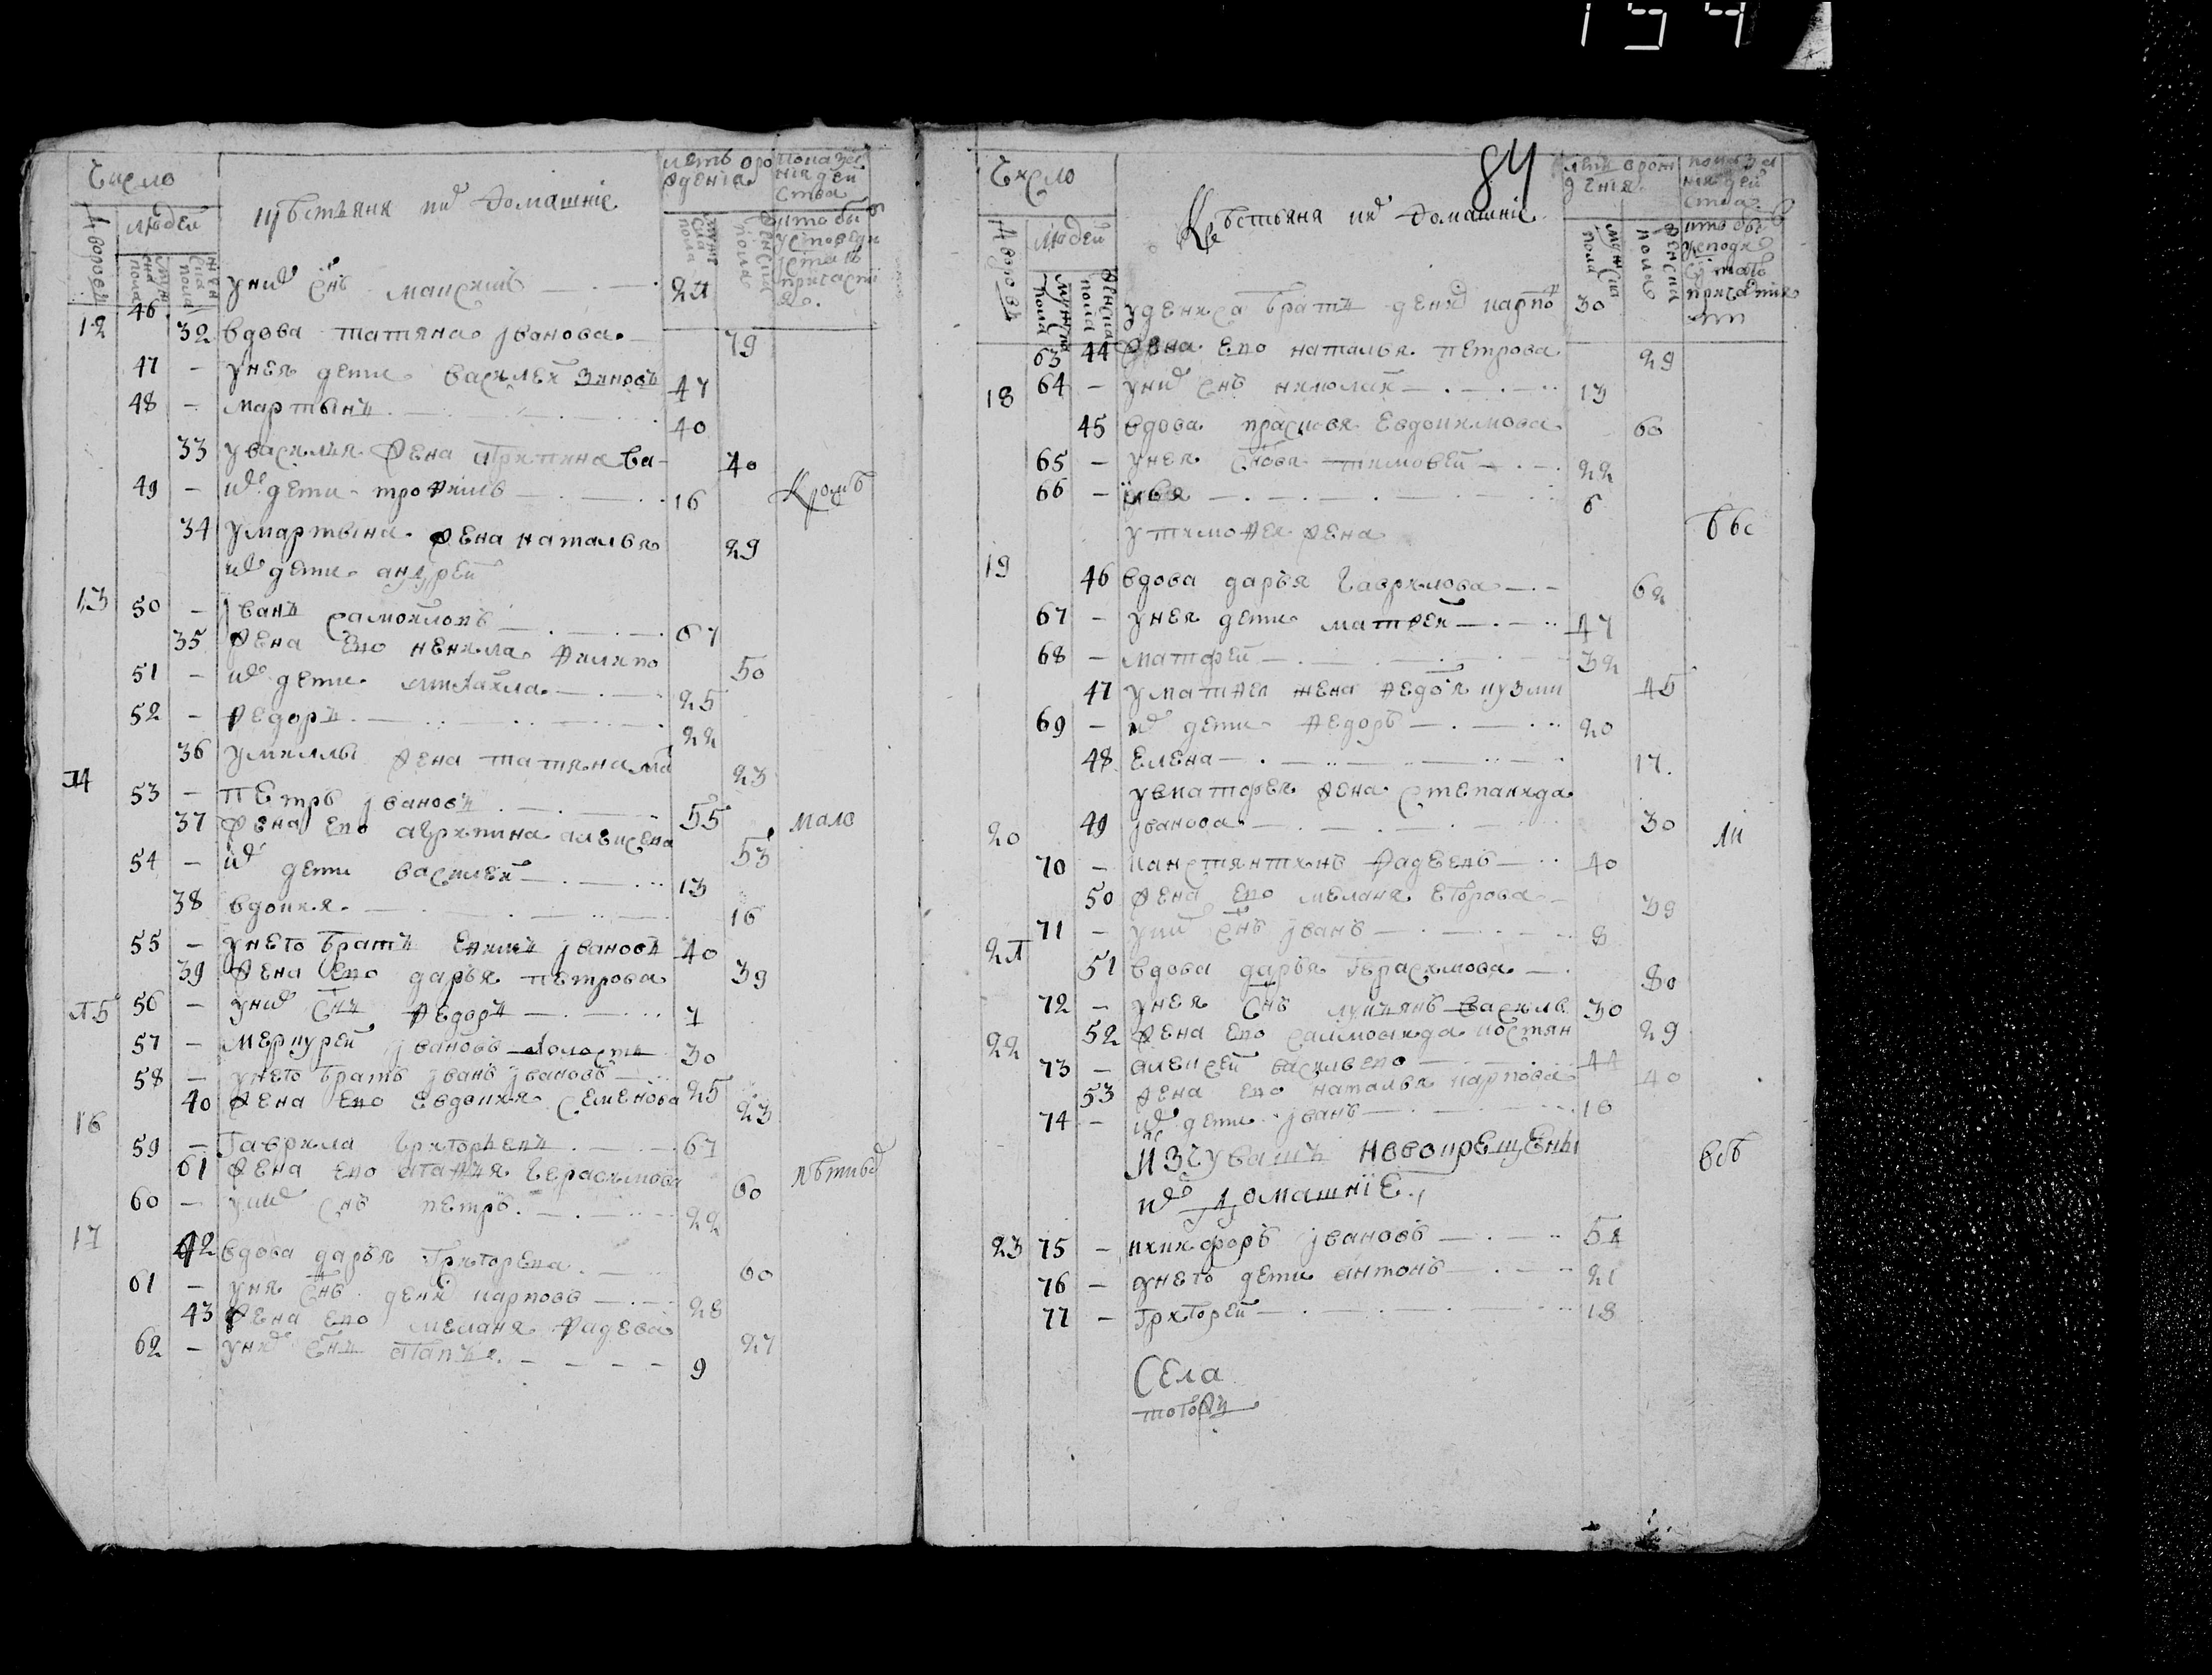 194
Число
Дворовъ
людей
мужска пола
женска пола
крестьяня ихъ домашніе
летъ врождения
мужска пола
женска пола
показания действа
кто былъ
у исповеди
причасти
46 унихъ снъ максимъ 21
12 32 вдова татяна јванова 79
47 - унея дети василей 47
48 - мартынъ 40
33 увасилия жена агрипина ва 40
49 - ихъ дети трофимъ 16 Кромѣ
34 умартына жена наталья 29
ихъ дети андрей
13 50 - јванъ самойловъ 67
35 жена ево ненила филипо 50
51 - ихъ дети михайла 25
52 - федоръ 22
36 умихайлы жена татияна 23
14 53 - петръ јвановъ 55
37 жена ево агрипина алексева 53 мало
54 - ихъ дети василей 13
38 вдокия 16
55 - унего братъ ефимъ јвановъ 40
39 жена ево дарья петрова 39
15 56 - унихъ снъ федоръ 7
57 - меркурей јвановъ холостъ 30
58 - унего братъ јванъ јвановъ 25
40 жена ево евдокия семенова 23
16 59 - гаврила григорьевъ 67
61 жена ево агафья герасимова 60 лѣтныхъ
60 - унихъ снъ петръ 22
17 42 вдова дарья григорева 60
61 - унея снъ дени карповъ 28
43 жена ево меланя фадева 27
62 - унихъ снъ агапъ 9
84
Число
Дворовъ
людей
мужска пола
женска пола
Крестьяня ихъ домашніе
летъ врождения
мужска пола
женска пола
показания действа
кто былъ
удениса братъ дени карпо 30
63 44 жена ево наталья петрова 29
18 64 - унихъ снъ николай 13
45 вдова прасковя евдокимова 60
65 - унея снова тимовей 22
66 - илья 6
утимофея жена
19 46 вдова дарья гаврилова 62
67 - унея дети матфей 47
68 - матфей 32
47 уматфея жена федося кузми 45
69 - ихъ дети федоръ 20
48 елена 17
уматфея жена степанида
20 49 јванова 30
70 - канстянтинъ фадеевъ 40
50 жена ево меланя егорова 39
71 - унихъ снъ јванъ 8
21 51 вдова дарья герасимова 80
72 - унея снъ лукъянъ василь 30
22 52 жена ево саломонида костян 29
73 - алексей васильево 44
53 жена ево наталья карпова 40
74 - ихъ дети јванъ 10
изчувашъ новокрещены
ихъ домашніе
23 75 - никифоръ јвановъ 51
76 - унего дети антонъ 21
77 - григорей 18
Села